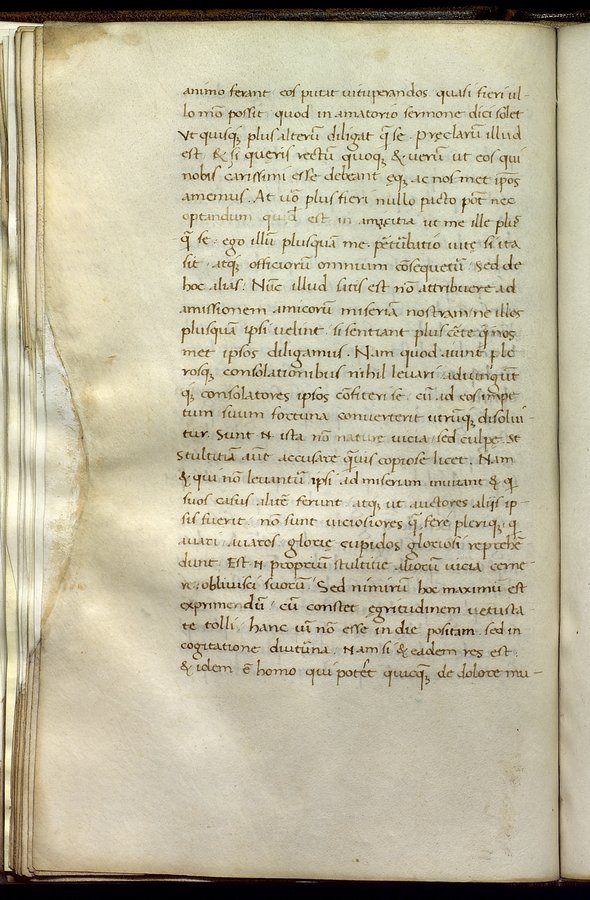 animo ferant eos putat vituperandos quasi fieri ul-
lo mõ possit quod in amatorio sermone dici solet
Ut quisq; plus alterũ diligat q̃ se. Preclarũ illud
est & si queris rectũ quoq; & verũ ut eos qui
nobis carissimi esse debeant eq; ac nos met ip̃os
amemus. At vo᷃ plus fieri nullo pacto põt nec
optandum quidẽ est in amicitia ut me ille plus
q̃ se. ego illũ plusquã me. pẽturbatio vite si ita
sit. atq; officiorũ omnium cõsequetur̃. Sed de
hoc alias. Nũc illud satis est nõ attribuere ad
amissionem amicorũ miseriã nostram. ne illos
plusquã ipsi velint. si sentiant plus cẽte q̃ nos
met ipsos diligamus. Nam quod aiunt ple
rosq; consolationibus nihil levari. adiungũt
q; consolatores ipsos cõfiteri se. cũ ad eos impe
tum suum fortuna converterit utrũq; disolui-
tur. Sunt .n. ista nõ nature vicia sed culpe. St
Stultitiã aut̃ accusare q̃vis copiose licet. Nam
& qui nõ levantur̃ ipsi. ad miserium invitant & q
suos casus alitẽ ferunt. atq; ut auctores aliis ip-
sis fuerit. nõ sunt viciosiores q̃ fere pleriq; q
avari avaros glorie cupidos gloriosi reprehẽ
dunt. Est .n. propriũ stultitie aliorũ vicia cerne
re. oblivisci suorũ. Sed nimirũ hoc maximũ est
exprimendũ. cũ constet egritudinem vetusta-
te tolli. hanc vim nõ esse in die positam. sed in
cogitatione diuturna. Nam si & eadem res est.
& idem ẽ homo qui potest quicq; de dolore mu-